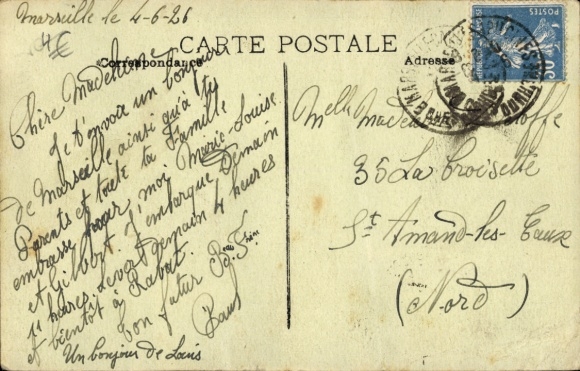 Marseille le 4-6-26
4€
CARTE POSTALE
Correspondance
Adresse
Chère Madeleine
Je t'envoie un bonjour
de Marseille ainsi qu'à tes
Parents et toute ta Famille
embrasse pour moi Marie-Louise
et Gilbert J'embarque Demain
1 heures le vert demain 4 heures
et bientôt à Rabat.
ton futur Beau Frère
Paul
Un bonjour de Louis
Melle Madeleine
35 La Croisette
St Amand-les-Eaux
(Nord)